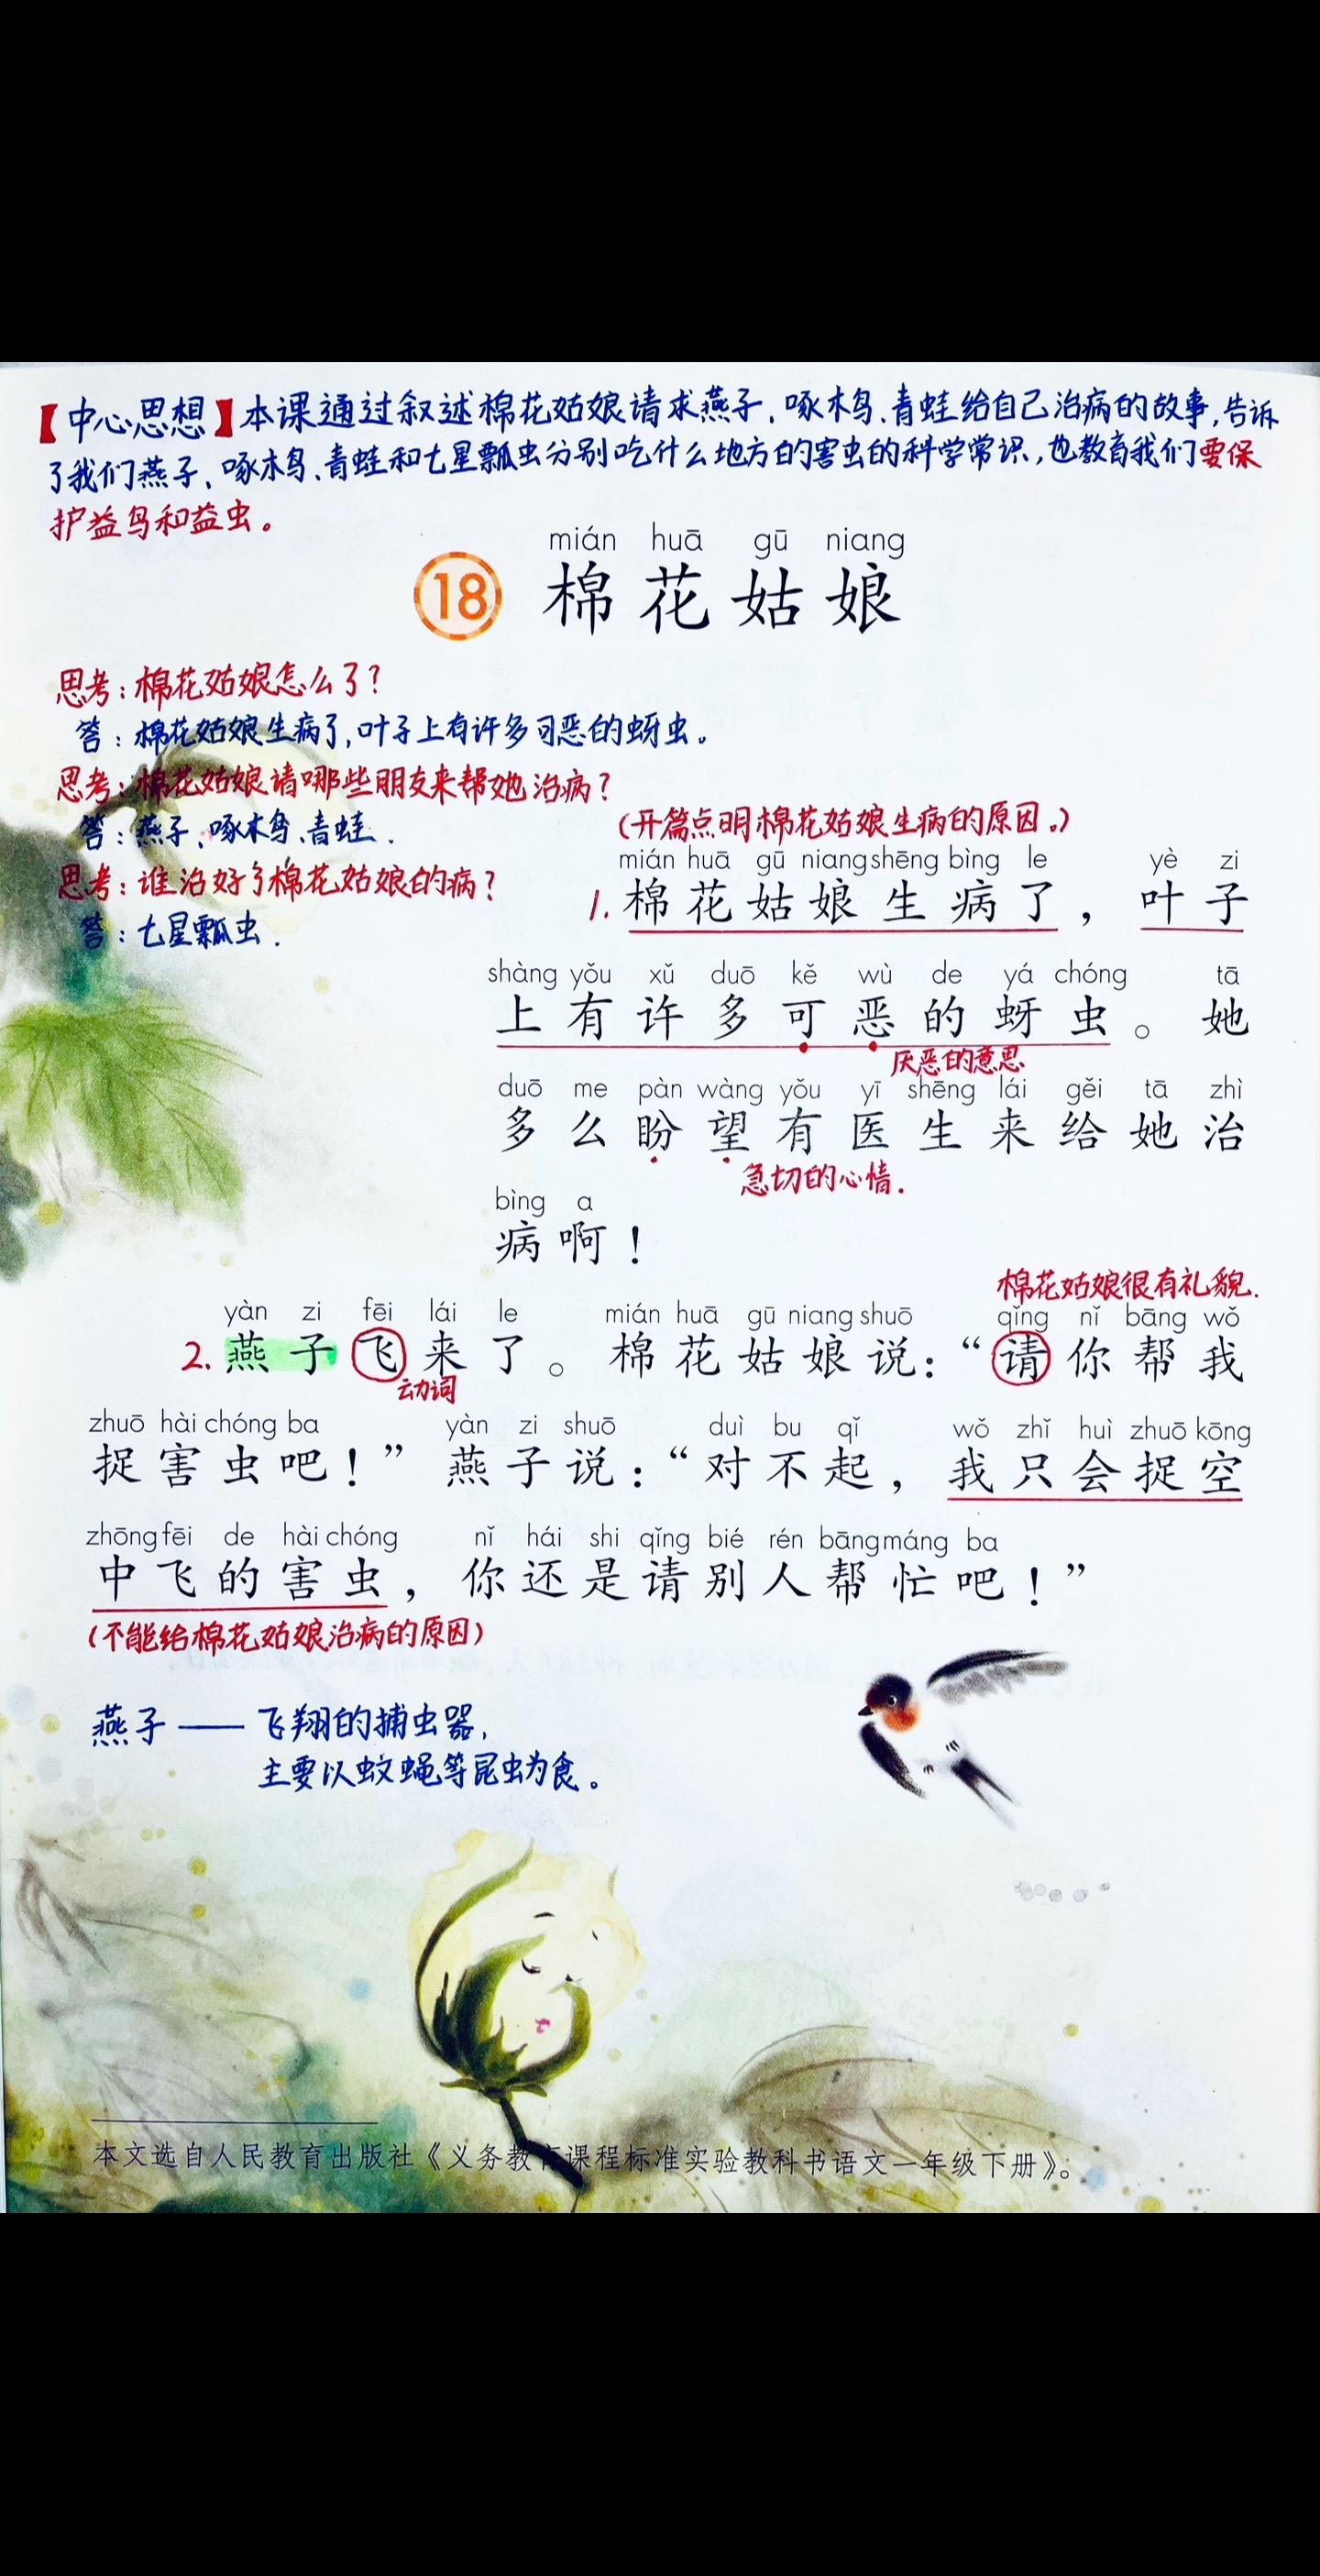 【中心思想】本课通过叙述棉花姑娘请求燕子、啄木鸟、青蛙给自己治病的故事,告诉
了我们燕子、啄木鸟、青蛙和七星瓢虫分别吃什么地方的害虫的科学常识,也教育我们要保
护益鸟和益虫。
mián huā gū niang
18 棉花姑娘
思考:棉花姑娘怎么了?
答:棉花姑娘生病了,叶子上有许多可恶的蚜虫。
思考:棉花姑娘请哪些朋友来帮她治病?
答:燕子、啄木鸟、青蛙.
思考:谁治好了棉花姑娘的病?
答:七星瓢虫.
(开篇点明棉花姑娘生病的原因。)
mián huā gū niang shēng bìng le yè zi
1. 棉花姑娘生病了,叶子
shàng yǒu xǔ duō kě wù de yá chóng tā
上有许多可恶的蚜虫。她
厌恶的意思
duō me pàn wàng yǒu yī shēng lái gěi tā zhì
多么盼望有医生来给她治
急切的心情.
bìng a
病啊!
棉花姑娘很有礼貌.
yàn zi fēi lái le mián huā gū niang shuō qǐng nǐ bāng wǒ
2. 燕子飞来了。棉花姑娘说:“请你帮我
动词
zhuō hài chóng ba yàn zi shuō duì bu qǐ wǒ zhǐ huì zhuō kōng
捉害虫吧!”燕子说:“对不起,我只会捉空
zhōng fēi de hài chóng nǐ hái shi qǐng bié rén bāng máng ba
中飞的害虫,你还是请别人帮忙吧!”
(不能给棉花姑娘治病的原因)
燕子——飞翔的捕虫器,
主要以蚊蝇等昆虫为食。
本文选自人民教育出版社《义务教育课程标准实验教科书语文一年级下册》。